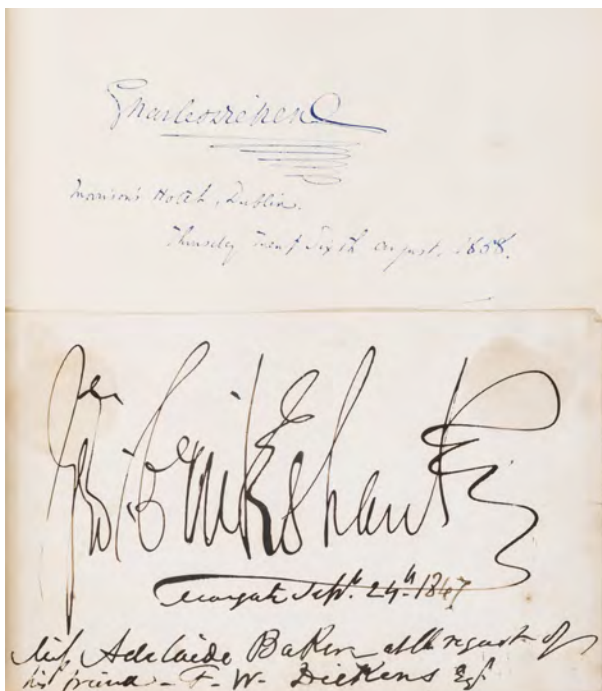 Charles Dickens
Morrison's Hotel, Dublin.
Thursday Twenty Sixth August, 1858.
Geo. Cruikshank
Margate Sept. 24th 1847
Miss Adelaide Baker at the request of
his friend - F. W. Dickens Esq.